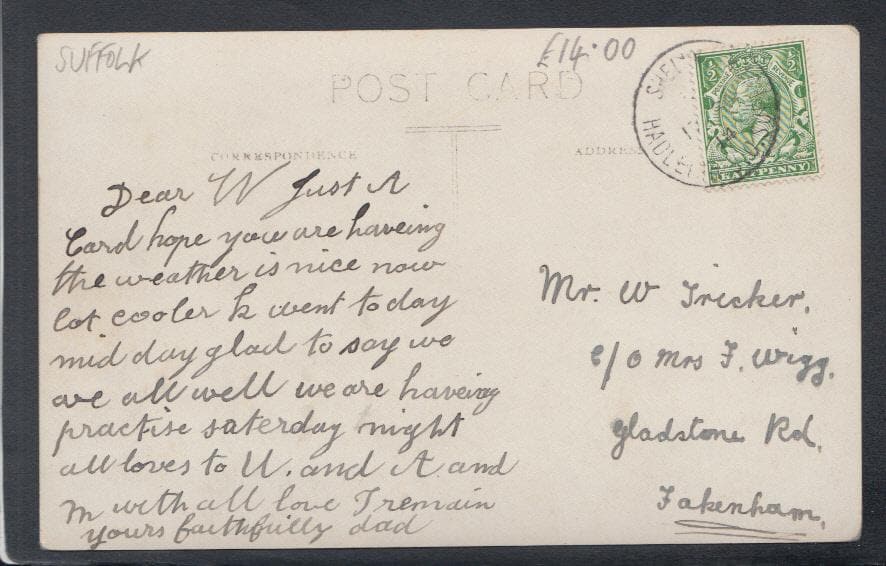 SUFFOLK
£14.00
POST CARD
CORRESPONDENCE
ADDRESS
HADLEI
1/2 1/2
HALFPENNY
Dear W Just A
Card hope you are haveing
the weather is nice now
lot cooler k went today
mid day glad to say we
are all well we are haveing
practise saterday night
all loves to U. and A and
M with all love I remain
yours faithfully dad
Mr. W Tricker,
c/o Mrs F. Wigg.
Gladstone Rd,
Fakenham,